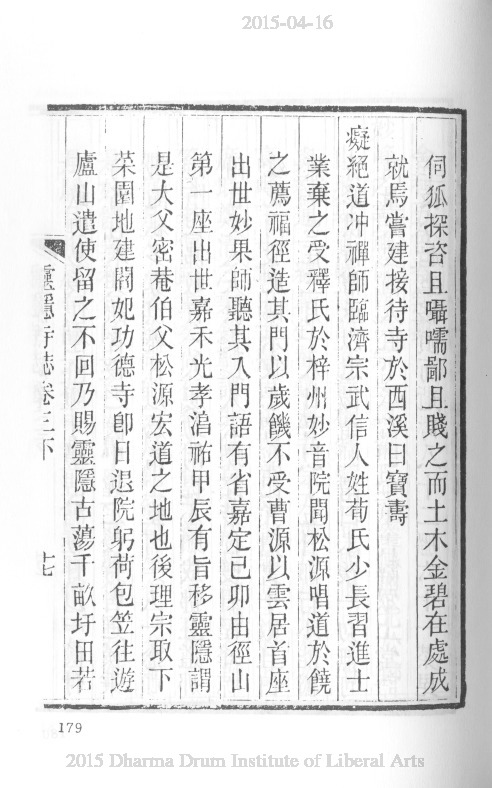 2015-04-16
伺狐探咨且囁嚅鄙且賤之而土木金碧在處成
就焉嘗建接待寺於西溪曰寶壽
癡絕道冲禪師臨濟宗武信人姓荀氏少長習進士
業棄之受釋氏於梓州妙音院聞松源唱道於饒
之薦福徑造其門以歲饑不受曹源以雲居首座
出世妙果師聽其入門語有省嘉定己卯由徑山
第一座出世嘉禾光孝湻祐甲辰有旨移靈隱謂
是大父密菴伯父松源宏道之地也後理宗取下
菜園地建閻妃功德寺卽日退院躬荷包笠往遊
廬山遣使留之不回乃賜靈隱古蕩千畝圩田若
靈隱寺誌卷三下
十七
179
2015 Dharma Drum Institute of Liberal Arts